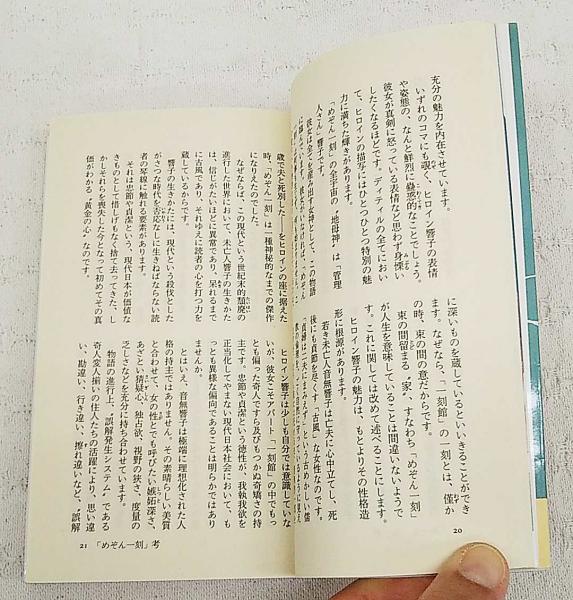 充分の魅力を内在させています。
いずれのコマにも覗く、ヒロイン響子の表情
や姿態の、なんと鮮烈に蠱惑的なことでしょう。
彼女が真剣に怒っている表情など思わず身慄い
したくなるほどです。ディティルの全てにおい
て、ヒロインの描写にはひとつひとつ特別の魅
力に満ちた輝きがあります。
「めぞん一刻」の全宇宙の〝地母神〟は〝管理
人さん〟響子です。
彼女は全てを産み出す女神として、この物語
に臨んでいます。彼女がいなければ、「めぞん
に深いものを蔵しているといいきることができ
ます。なぜなら、「一刻館」の一刻とは、僅か
の時、束の間の意だからです。
束の間留まる〝家〟、すなわち「めぞん一刻」
が人生を意味していることは間違いないようで
す。これに関しては改めて述べることにします。
ヒロイン響子の魅力は、もとよりその性格造
形に根源があります。
若き未亡人音無響子は亡夫に心中立てし、死
後にも貞節を尽くす〝古風〟な女性なのです。
「貞婦は二夫にまみえず」という古めかしい儒
20
歳で夫と死別した――をヒロインの座に据えた
時、「めぞん一刻」は一種神秘的なまでの傑作
になりえたのでした。
なぜならば、この現代という世紀末的頽廃の
進行した世界において、未亡人響子の生きかた
は、信じがたいほどに異常であり、呆れるまで
に古風であり、それゆえに読者の心を打つ力を
蔵しているからです。
響子の生きかたには、現代という殺伐とした
がさつな時代を否応なしに生きねばならない読
者の琴線に触れる要素があります。
それは忠節や貞潔という、現代日本が無価な
きものとして惜しげもなく捨て去ってきた、し
かしそれらを喪失した今となって初めてその真
価がわかる〝黄金の心〟なのです。
ヒロイン響子は少しも自分では意識していな
いが、彼女こそアパート「一刻館」の中でもっ
とも偏った奇人ですら及びもつかぬ奇矯さの持
主です。忠節や貞潔という徳性が、我執我欲を
正当化してやまない現代日本社会において、も
っとも異様な偏向であることは明らかではあり
ませんか。
とはいえ、音無響子は極端に理想化された人
格の持主ではありません。その素晴らしい美質
と合わせて、女の性とでも呼びたい嫉妬深さ、
あざとい猜疑心、独占欲、視野の狭さ、度量の
乏しさなどを充分に持ち合わせています。
物語の進行上、〝誤解発生システム〟である
奇人変人揃いの住人たちの活躍により、思い違
い、勘違い、行き違い、擦れ違いなど、〝誤解
21 「めぞん一刻」考